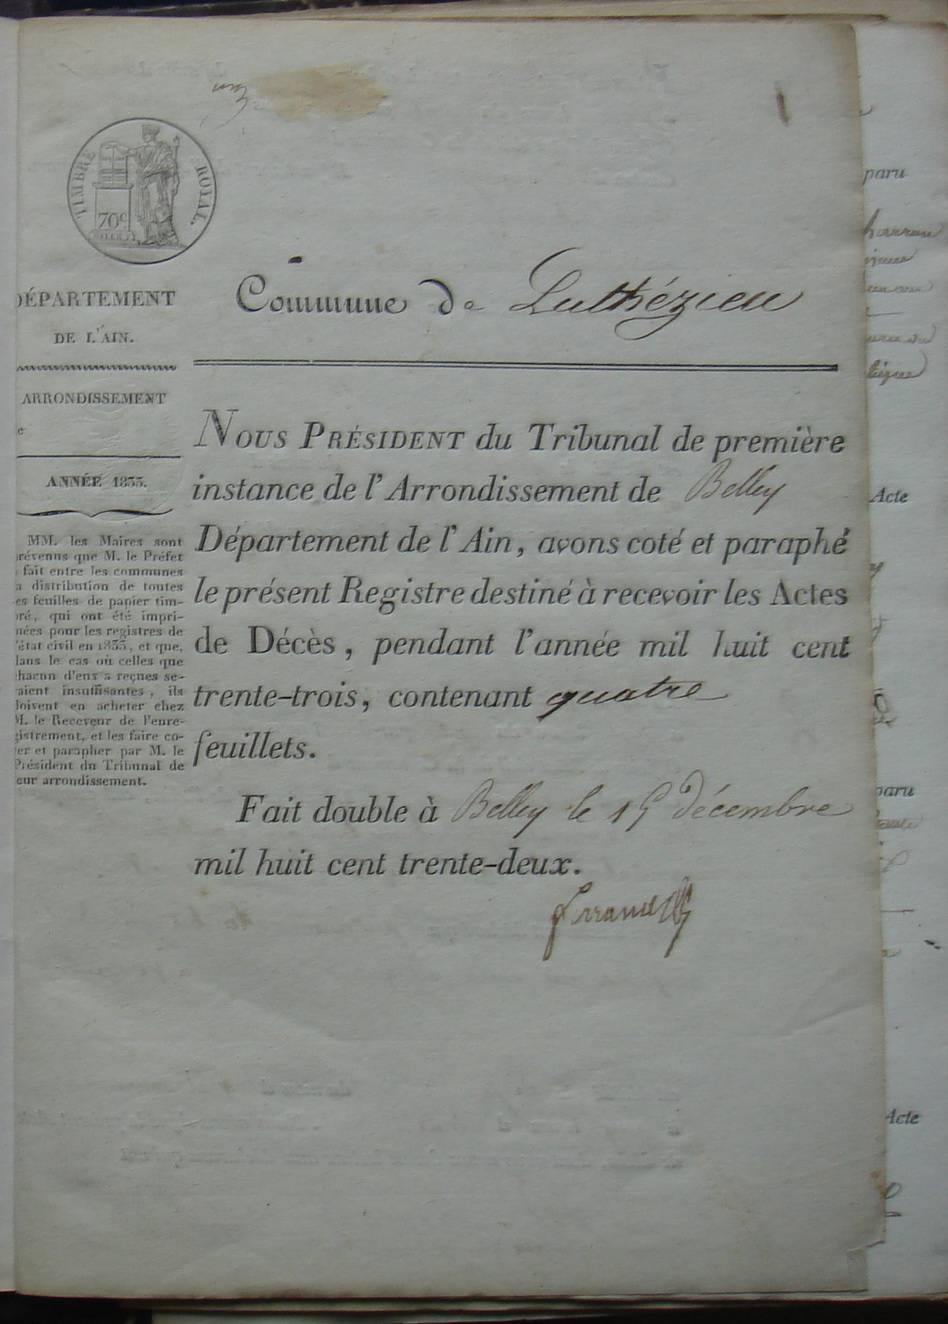 TIMBRE ROYAL.
70c
DÉPARTEMENT
DE L'AIN.
ARRONDISSEMENT
e
ANNÉE 1833.
MM. les Maires sont
révenus que M. le Préfet
fait entre les communes
a distribution de toutes
es feuilles de papier tim-
ré, qui ont été impri-
nées pour les registres de
'état civil en 1833, et que,
dans le cas où celles que
chacun d'eux a reçues se-
aient insuffisantes, ils
doivent en acheter chez
M. le Receveur de l'enre-
gistrement, et les faire co-
ter et parapher par M. le
Président du Tribunal de
eur arrondissement.
Commune de Luthézieu
NOUS PRÉSIDENT du Tribunal de première
instance de l'Arrondissement de Belley
Département de l'Ain, avons coté et paraphé
le présent Registre destiné à recevoir les Actes
de Décès, pendant l'année mil huit cent
trente-trois, contenant quatre
feuillets.
Fait double à Belley le 15 décembre
mil huit cent trente-deux.
paru
Acte
paru
Acte